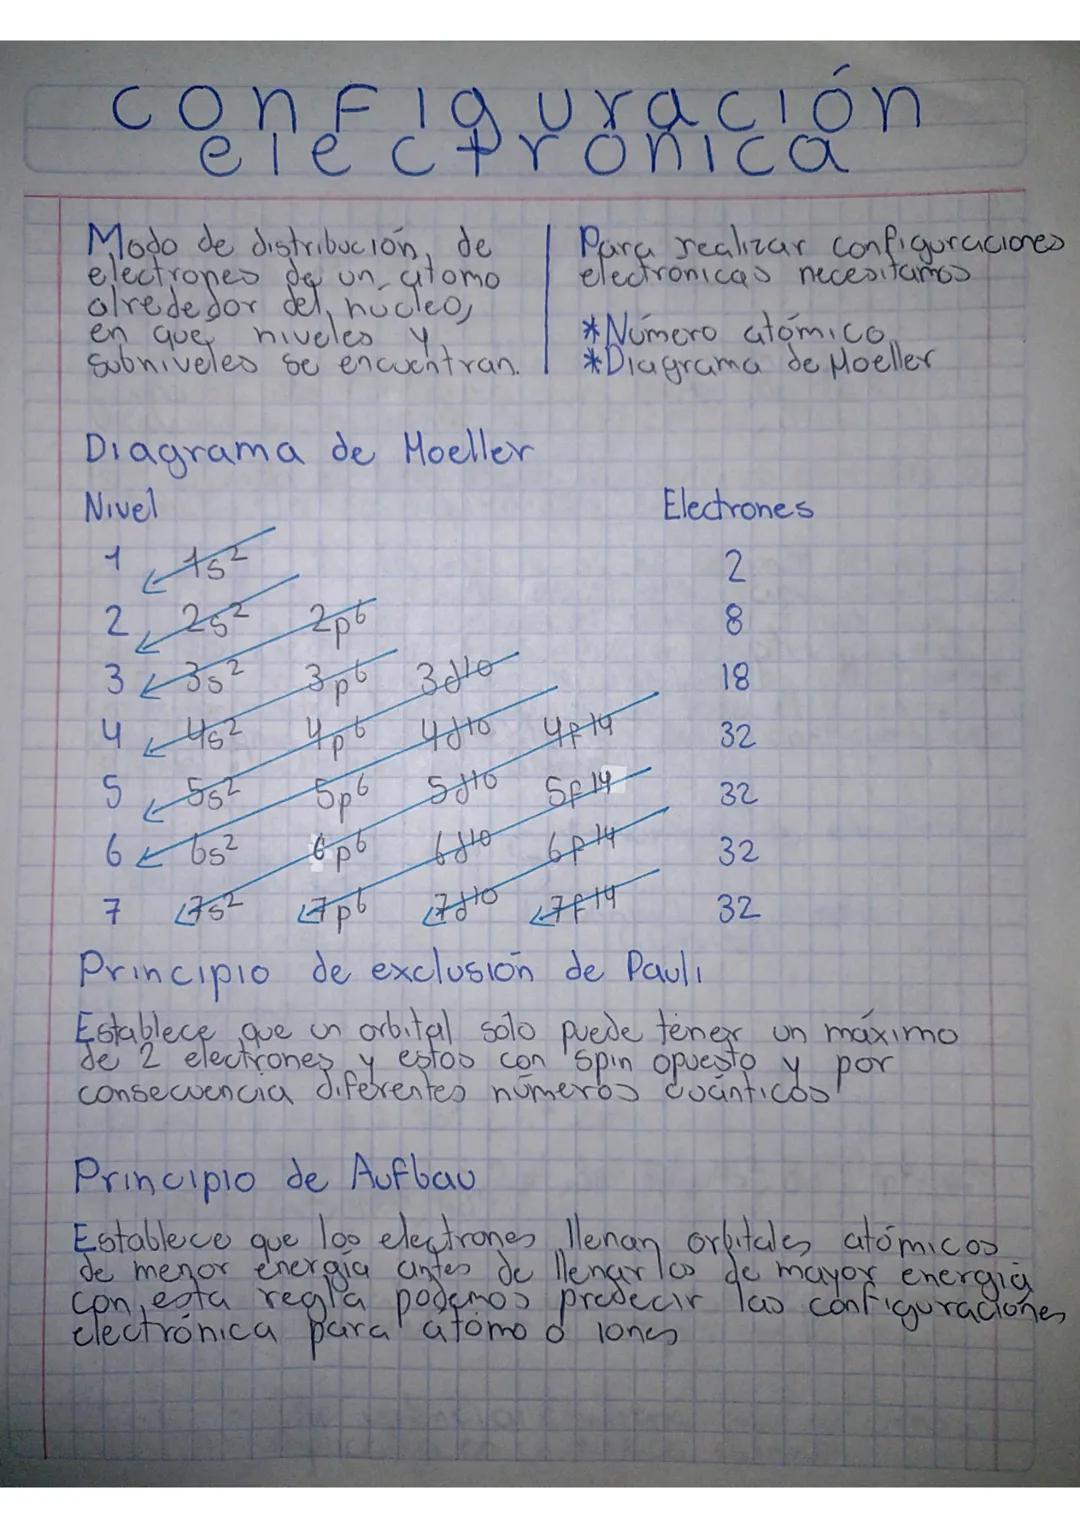 configuración
electrónica
Modo de distribución, de
electrones de un átomo
alrededor del núcleo,
en que niveles y
subniveles se encuentran.
Para realizar configuraciones
electronicas necesitamos
*Número atómico
*Diagrama de Moeller
Diagrama de Moeller
Nivel Electrones
1 1s² 2
2 2s² 2p⁶ 8
3 3s² 3p⁶ 3d¹⁰ 18
4 4s² 4p⁶ 4d¹⁰ 4f¹⁴ 32
5 5s² 5p⁶ 5d¹⁰ 5f¹⁴ 32
6 6s² 6p⁶ 6d¹⁰ 6f¹⁴ 32
7 7s² 7p⁶ 7d¹⁰ 7f¹⁴ 32
Principio de exclusión de Pauli
Establece que un orbital solo puede tener un máximo
de 2 electrones y estos con spin opuesto y por
consecuencia diferentes números cuánticos
Principio de Aufbau
Establece que los electrones llenan orbitales atómicos
de menor energía antes de llenar los de mayor energía
con esta regla podemos predecir las configuraciones
electrónica para átomo o iones